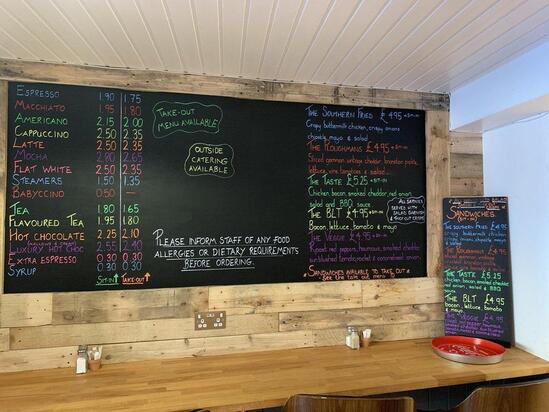 ESPRESSO 1.90 1.75
MACCHIATO 1.95 1.80
AMERICANO 2.15 2.00
CAPPUCCINO 2.50 2.35
LATTE 2.50 2.35
MOCHA 2.65
FLAT WHITE 2.50 2.35
STEAMERS 1.50 1.35
BABYCCINO 0.50
TEA 1.80 1.65
FLAVOURED TEA 1.95 1.80
HOT CHOCOLATE 2.25 2.10
LUXURY HOT CHOC 2.55 2.40
EXTRA ESPRESSO 0.30 0.30
SYRUP 0.30 0.30
SIT-IN TAKE-OUT
TAKE-OUT
MENU AVAILABLE
OUTSIDE
CATERING
AVAILABLE
PLEASE INFORM STAFF OF ANY FOOD
ALLERGIES OR DIETARY REQUIREMENTS
BEFORE ORDERING.
THE SOUTHERN FRIED £4.95
Crispy buttermilk chicken, crispy onions
chipotle mayo & salad
THE PLOUGHMANS £4.95
Sliced gammon, vintage cheddar, branston pickle,
lettuce, vine tomatoes & salad
THE TASTE £5.25
Chicken, bacon, smoked cheddar, red onion,
salad and BBQ sauce
THE BLT £4.95
Bacon, lettuce, tomato & mayo
THE VEGGIE £4.95
Roast red peppers, houmous, smoked cheddar
sunblush tomato, rocket & caramelised onion.
SANDWICHES AVAILABLE TO TAKE OUT
See the take out menu
ALL SANDWICHES
SERVED WITH
SALAD GARNISH
& COLESLAW
SANDWICHES
THE SOUTHERN
FRIED £4.95
crispy buttermilk chicken,
crispy onions, chipotle
mayo & salad
THE PLOUGHMANS
£4.95
THE TASTE £5.25
Chicken, bacon,
smoked cheddar, red
onion, salad & BBQ
THE BLT £4.95
bacon, lettuce, tomato
& mayo
THE VEGGIE £4.95